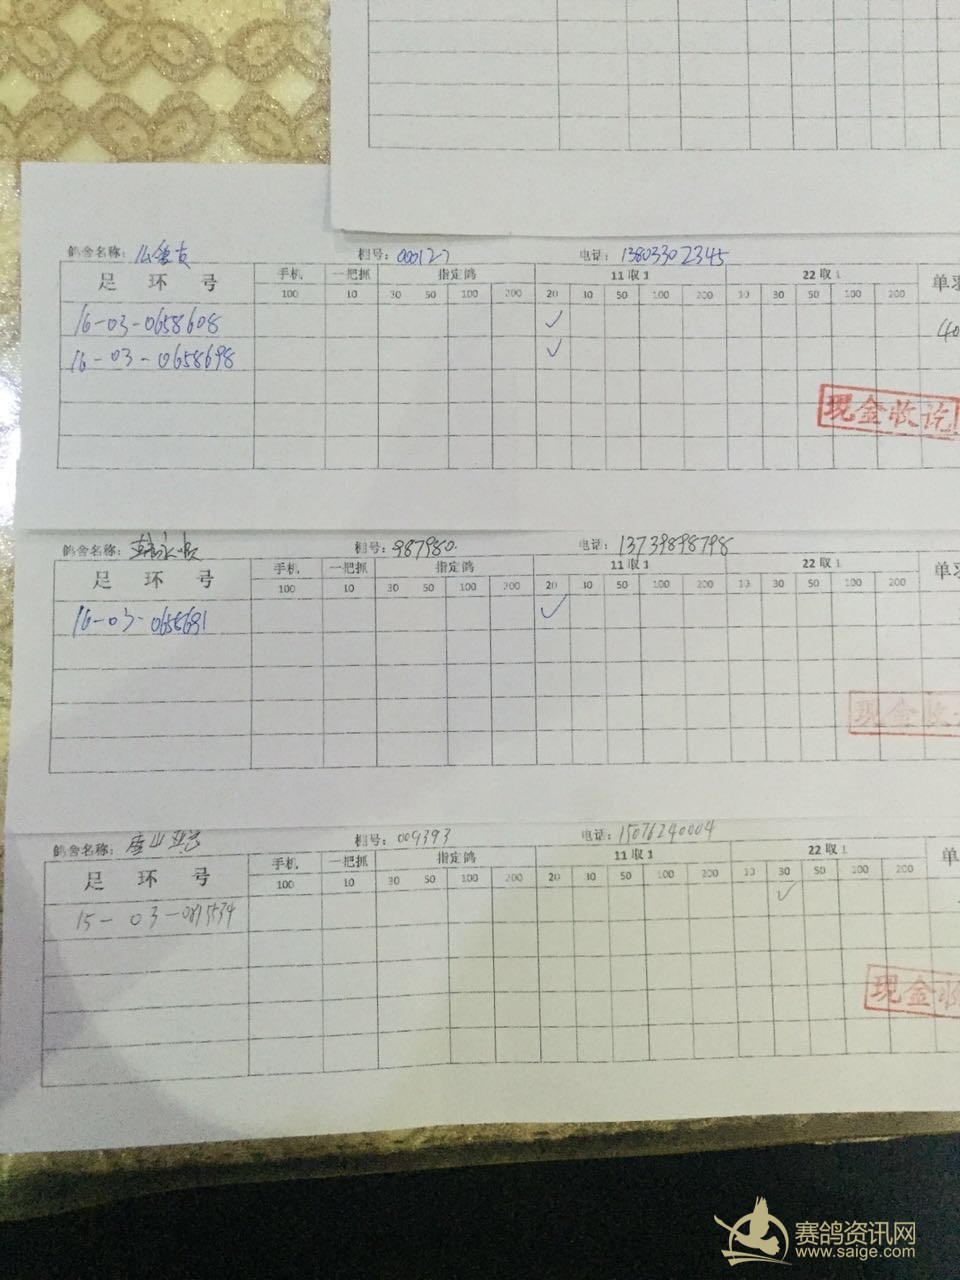 鸽舍名称： 棚号：000127 电话：13803302345
足环号 手机 一把抓 指定鸽 11取1 22取1 单羽
100 10 30 50 100 200 20 30 50 100 200 10 30 50 100 200
16-03-0658608 ✓ 40
16-03-0658698 ✓
现金收讫
鸽舍名称：韩永顺 棚号：987980. 电话：13739898798
足环号 手机 一把抓 指定鸽 11取1 22取1 单羽
100 10 30 50 100 200 20 30 50 100 200 10 30 50 100 200
16-03-0658691 ✓
现金收
鸽舍名称：唐山 棚号：009393 电话：15076240004
足环号 手机 一把抓 指定鸽 11取1 22取1 单
100 10 30 50 100 200 20 30 50 100 200 10 30 50 100 200
15-03- ✓
现金收
赛鸽资讯网
www.saige.com